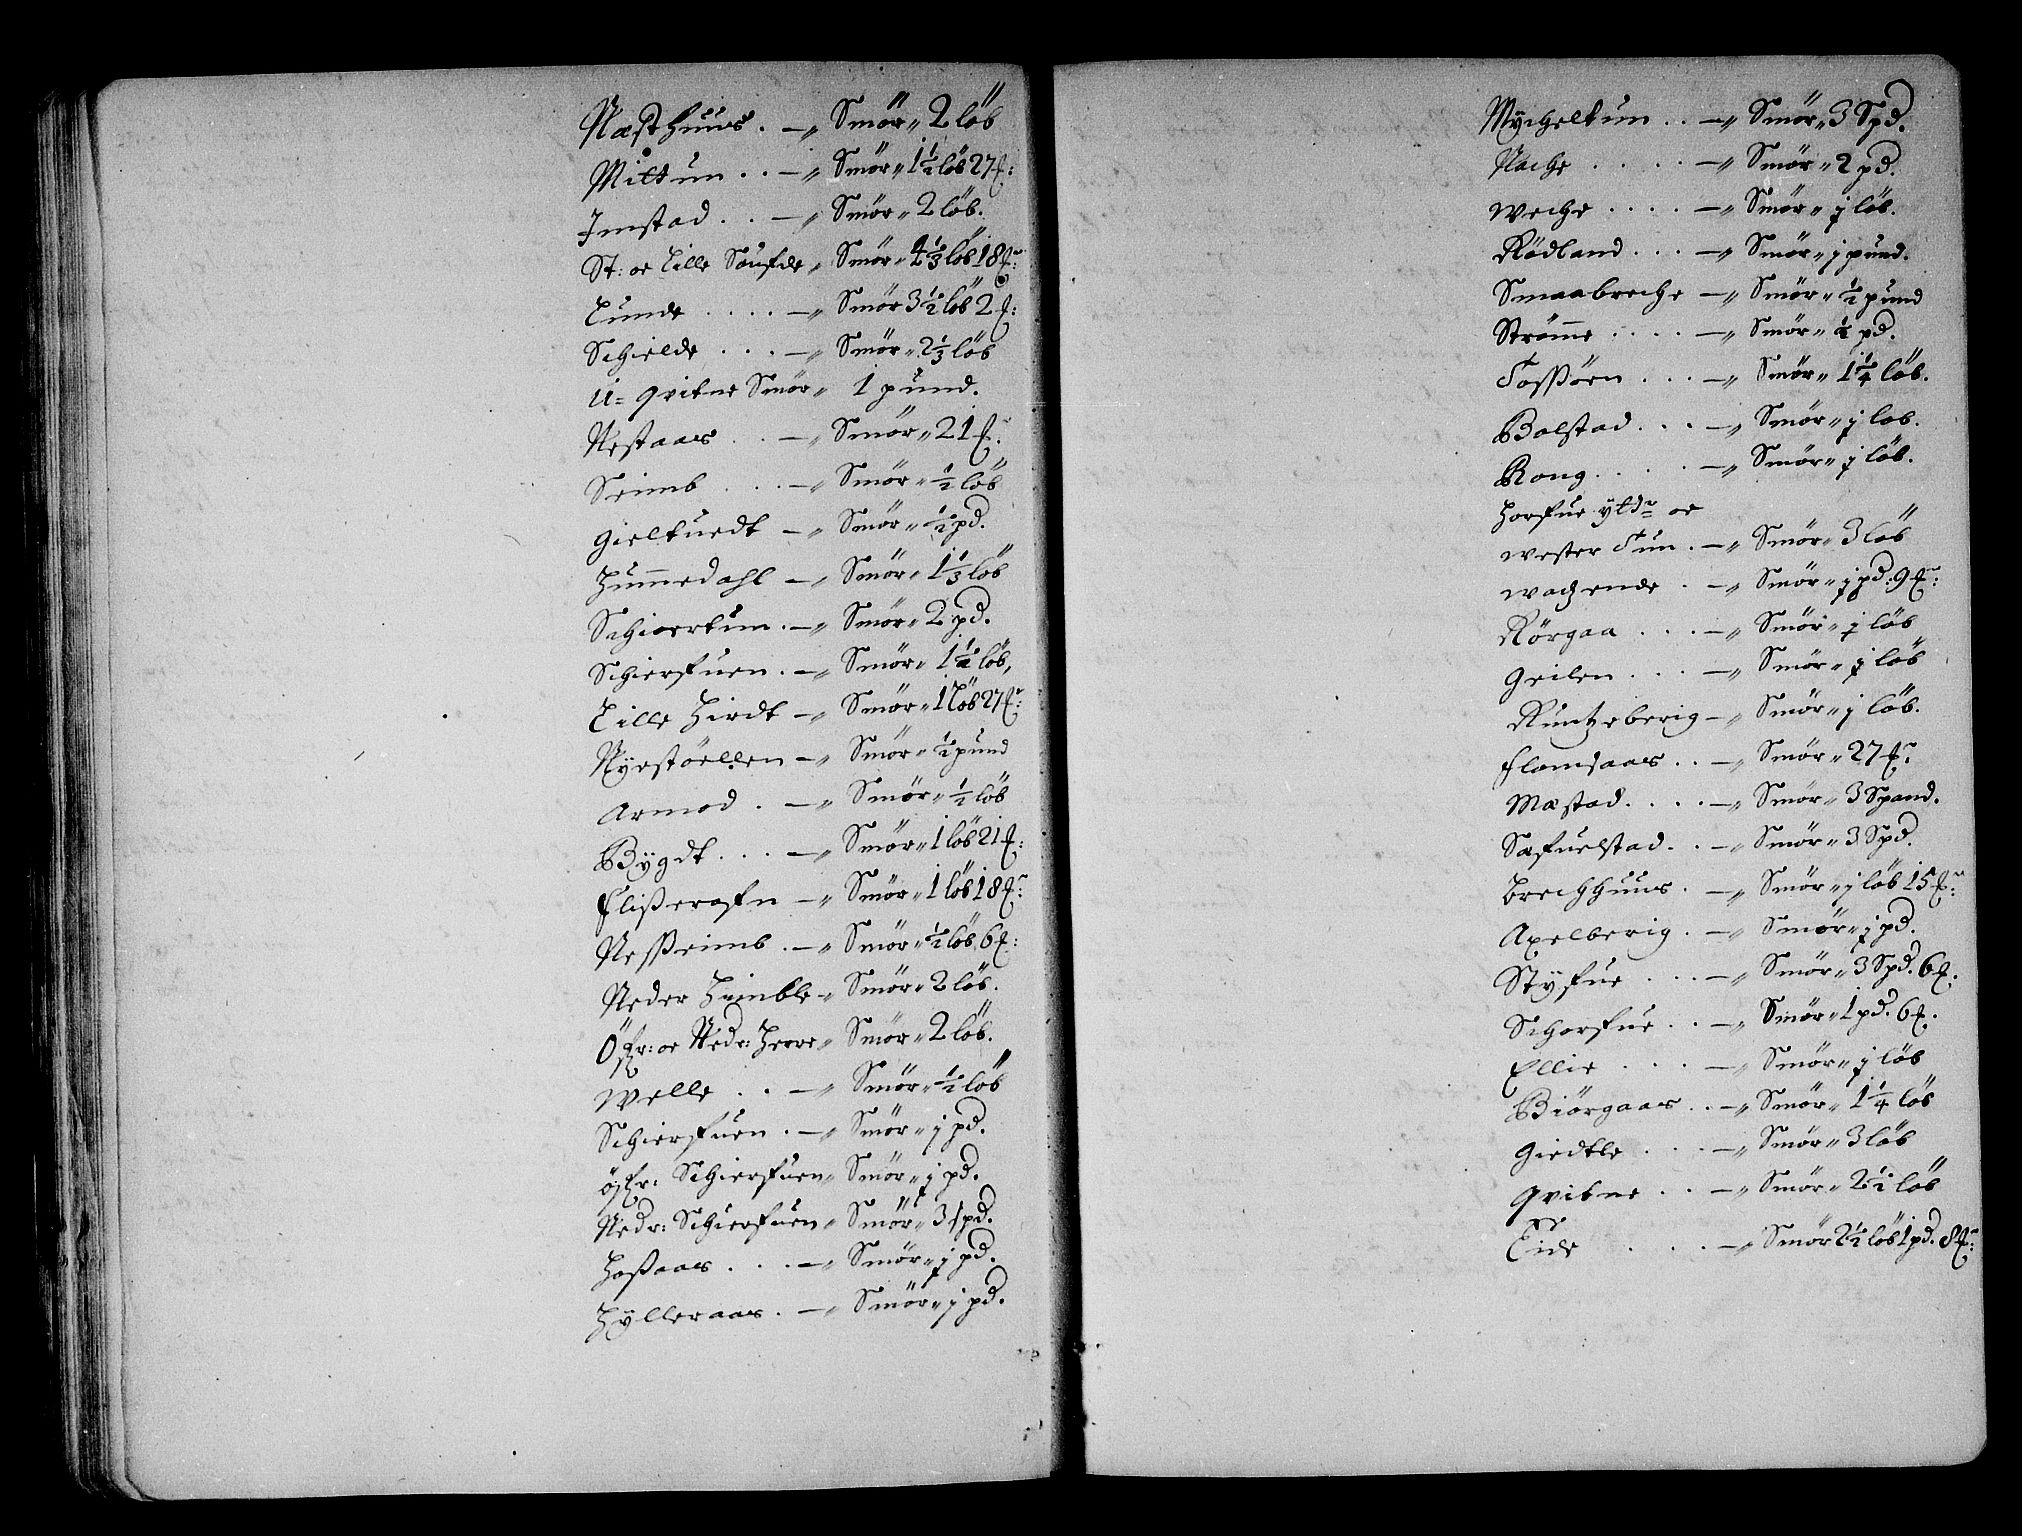 Næsthuus . –„ Smör„ 2 löb
Miltun . . –„ Smör„ 1½ löb 27 ℔:
Imstad . . –„ Smör„ 2 löb.
St: oc Lille Söufde„ Smör„ 4⅓ löb 18 ℔:
Lunde . . . . –„ Smör 3½ löb 2 ℔:
Schielde . . . –„ Smör„ 2⅓ löb
U= Qvitne Smör„ 1 pund.
Nestaas . . –„ Smör„ 21 ℔:
Seimb . . . –„ Smör„ ½ löb
Gieltuedt –„ Smör„ ½ pd.
Hummedahl –„ Smör„ 1⅓ löb
Schiertun . –„ Smör„ 2 pd.
Schierfuen . –„ Smör„ 1½ löb,
Lille Hirdt –„ Smör„ 1 löb 27 ℔:
Nyestöellen –„ Smör„ ½ pund
Armod . –„ Smör„ ½ löb
Bÿgdt . . . –„ Smör„ 1 löb 21 ℔:
Flißerafn –„ Smör„ 1 löb 18 ℔:
Neßeimb . –„ Smör„ ½ löb 6 ℔:
Neder Himble –„ Smör„ 2 löb.
Öfr: oc Nedr: Herre„ Smör„ 2 löb.
Welle . . –„ Smör„ ½ löb
Schierfuen . –„ Smör„ j pd.
öfr: Schierfuen„ Smör„ j pd.
Nedr: Schierfuen„ Smör„ 3 spd.
Haßaas . . . –„ Smör„ j pd.
Hÿlleraas . –„ Smör„ j pd.
Mÿcheltun . . –„ Smör„ 3 Spd.
Nache . . . . –„ Smör„ 2 pd.
Weche . . . . –„ Smör„ j löb.
Rödland . . . –„ Smör„ j pund.
Smaabreche –„ Smör„ ½ pund
Strömme . . . . –„ Smör„ ½ pd.
Foßören . . . –„ Smör„ 1¼ löb.
Bolstad . . . –„ Smör„ j lob.
Rong . . . . –„ Smör„ j löb.
Horfue ÿtdr= oc
Wester Tun . –„ Smör„ 3 löb
Wachende . –„ Smör„ j pd: 9 ℔:
Rörgaa . . . –„ Smör„ j löb
Geilen . . . –„ Smör„ j löb
Runtzeberig –„ Smör„ j löb.
Flamsaas . . –„ Smör„ 27 ℔:
Mæstad . . . . –„ Smör„ 3 Spand.
Safuelstad . . –„ Smör„ 3 Spd.
Brechhuus . –„ Smör„ j löb 15 ℔:
Axelberig . –„ Smör„ j pd.
Stÿfue . . . –„ Smör„ 3 Spd. 6 ℔.
Schorfue . . –„ Smör„ 1 pd. 6 ℔.
Ellie . . . . –„ Smör„ j löb
Biörgaas . . –„ Smör„ 1¼ löb
Giedtle . . . –„ Smör„ 3 löb
Qvitne . . –„ Smör„ 2½ löb
Eide . . . . –„ Smör 2½ löb 1 pd. 8 ℔: